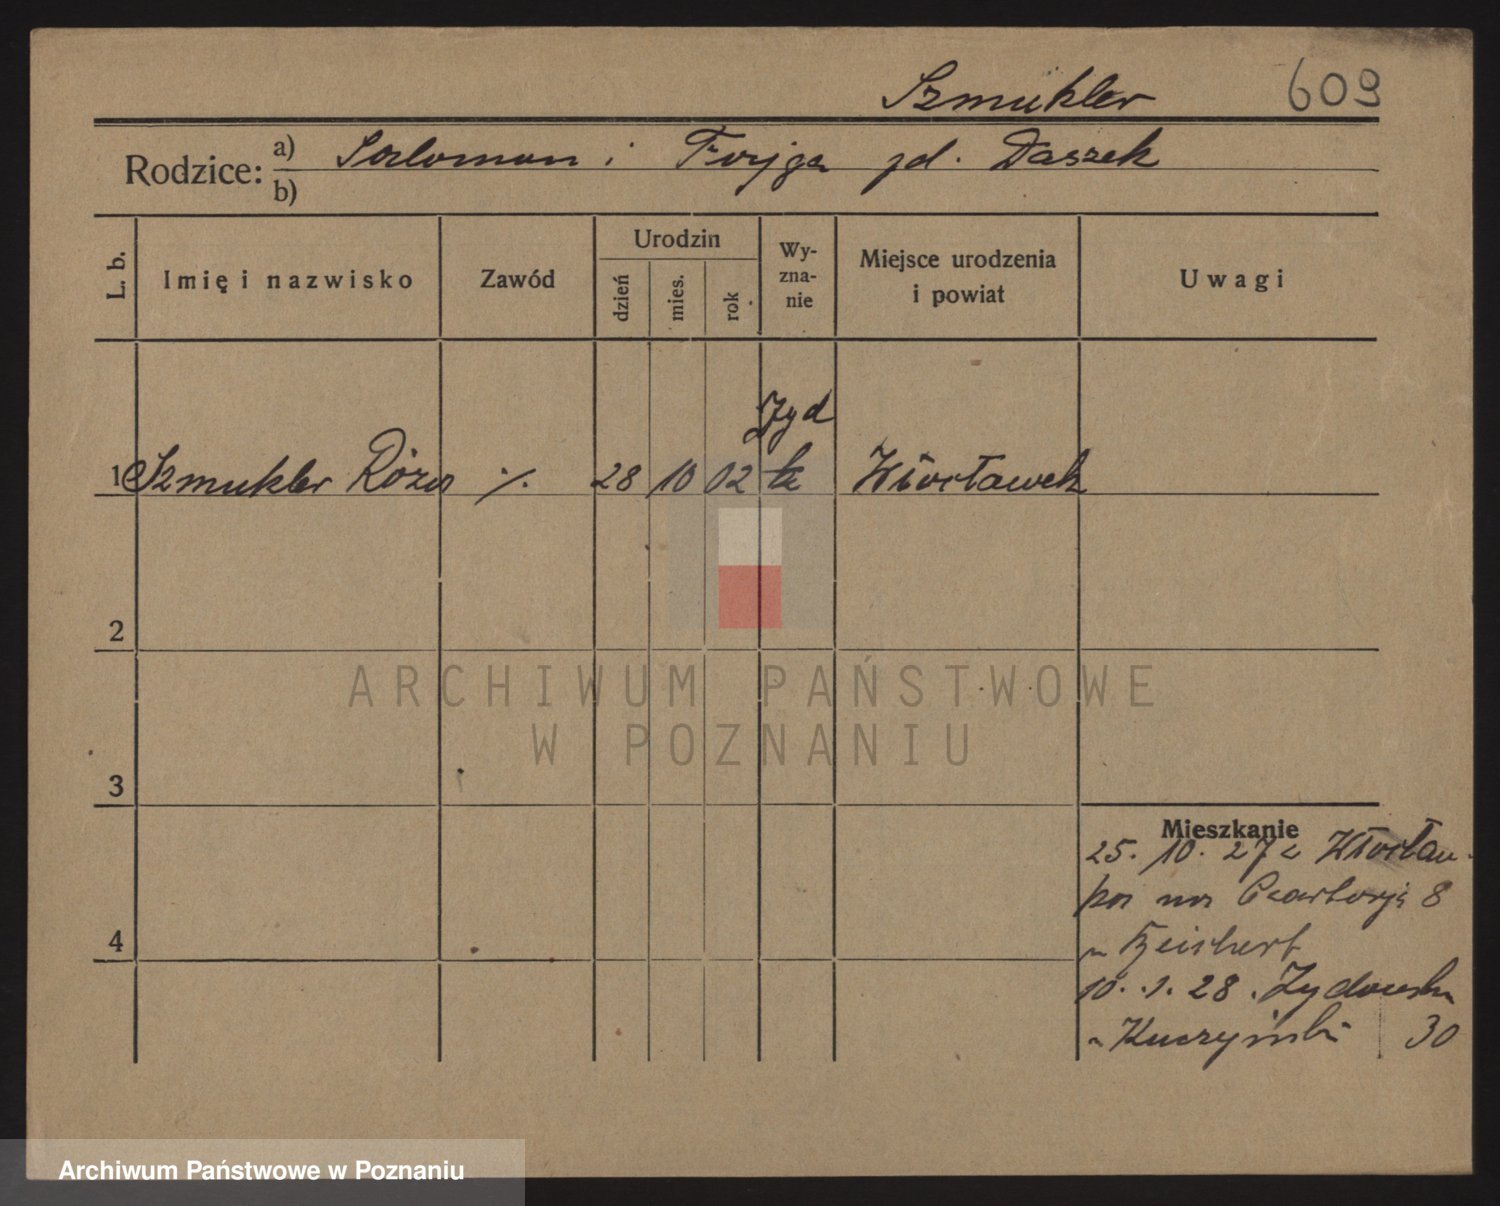 Szmukler 609
Rodzice: a) Salomon i Frajga zd. Daszek
b)
L. b. Imię i nazwisko Zawód Urodzin dzień mies. rok Wyznanie Miejsce urodzenia i powiat Uwagi
1 Szmukler Róża ·/. 28 10 02 Żyd k Włocławek
2
3
4
Mieszkanie
25. 10. 27 z Włocław-
ka na Czartorja 8
u
10. 1. 28. Żydowska
u Kuczyński 30
ARCHIWUM PAŃSTWOWE
W POZNANIU
Archiwum Państwowe w Poznaniu